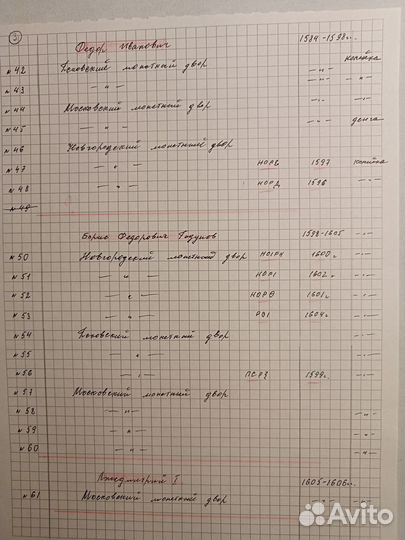 3
Федор Иванович 1584-1598г.
N42 Псковский монетный двор —"— копейка
N43 —"— —"— —"—
N44 Московский монетный двор —"— —"—
N45 —"— —"— денга
N46 Новгородский монетный двор
N47 —"— НОРЕ 1597 копейка
N48 —"— НОРД 1596 —"—
N49
Борис Федорович Годунов 1598-1605 —"—
N50 Новгородский монетный двор 1600г. —"—
N51 —"— НОРI 1602г. —"—
N52 —"— НОРѲ 1601г. —"—
N53 —"— РОI 1604г. —"—
N54 Псковский монетный двор —"—
N55 —"— —"—
N56 —"— ПСРЗ 1599г. —"—
N57 Московский монетный двор —"—
N58 —"— —"—
N59 —"— —"—
N60 —"— —"—
Лжедмитрий I 1605-1606г.
N61 Московский монетный двор —"— —"—
Avito